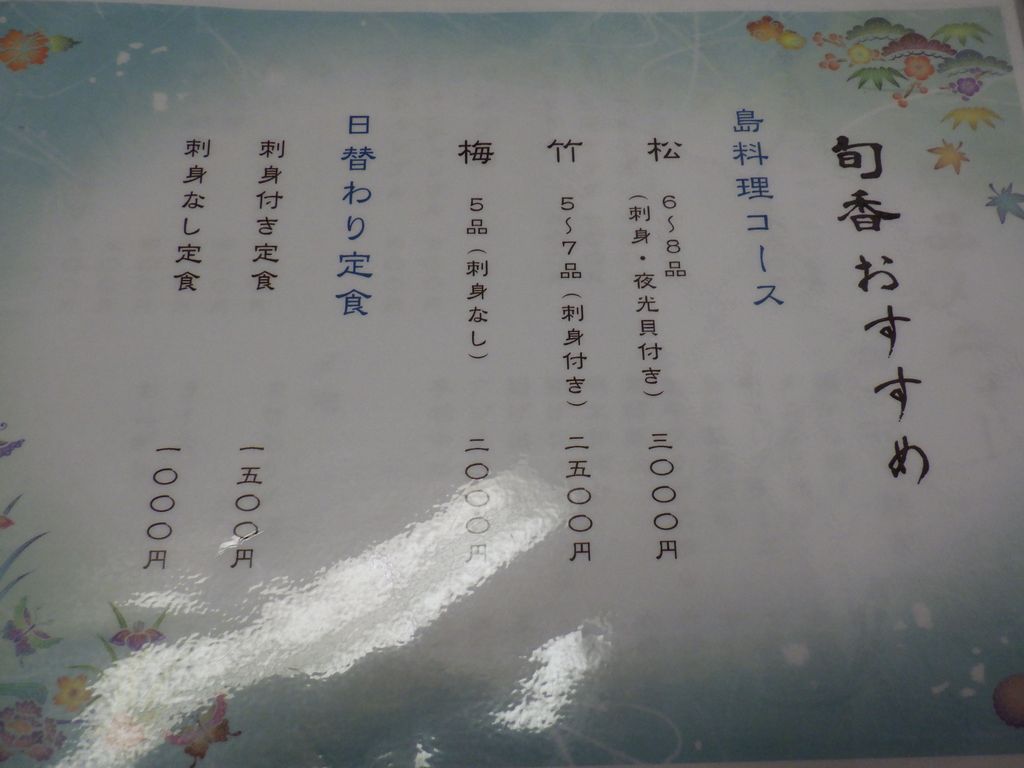 旬香おすすめ
島料理コース
松 6～8品 三〇〇〇円
(刺身・夜光貝付き)
竹 5～7品(刺身付き) 二五〇〇円
梅 5品(刺身なし) 二〇〇〇円
日替わり定食
刺身付き定食 一五〇〇円
刺身なし定食 一〇〇〇円